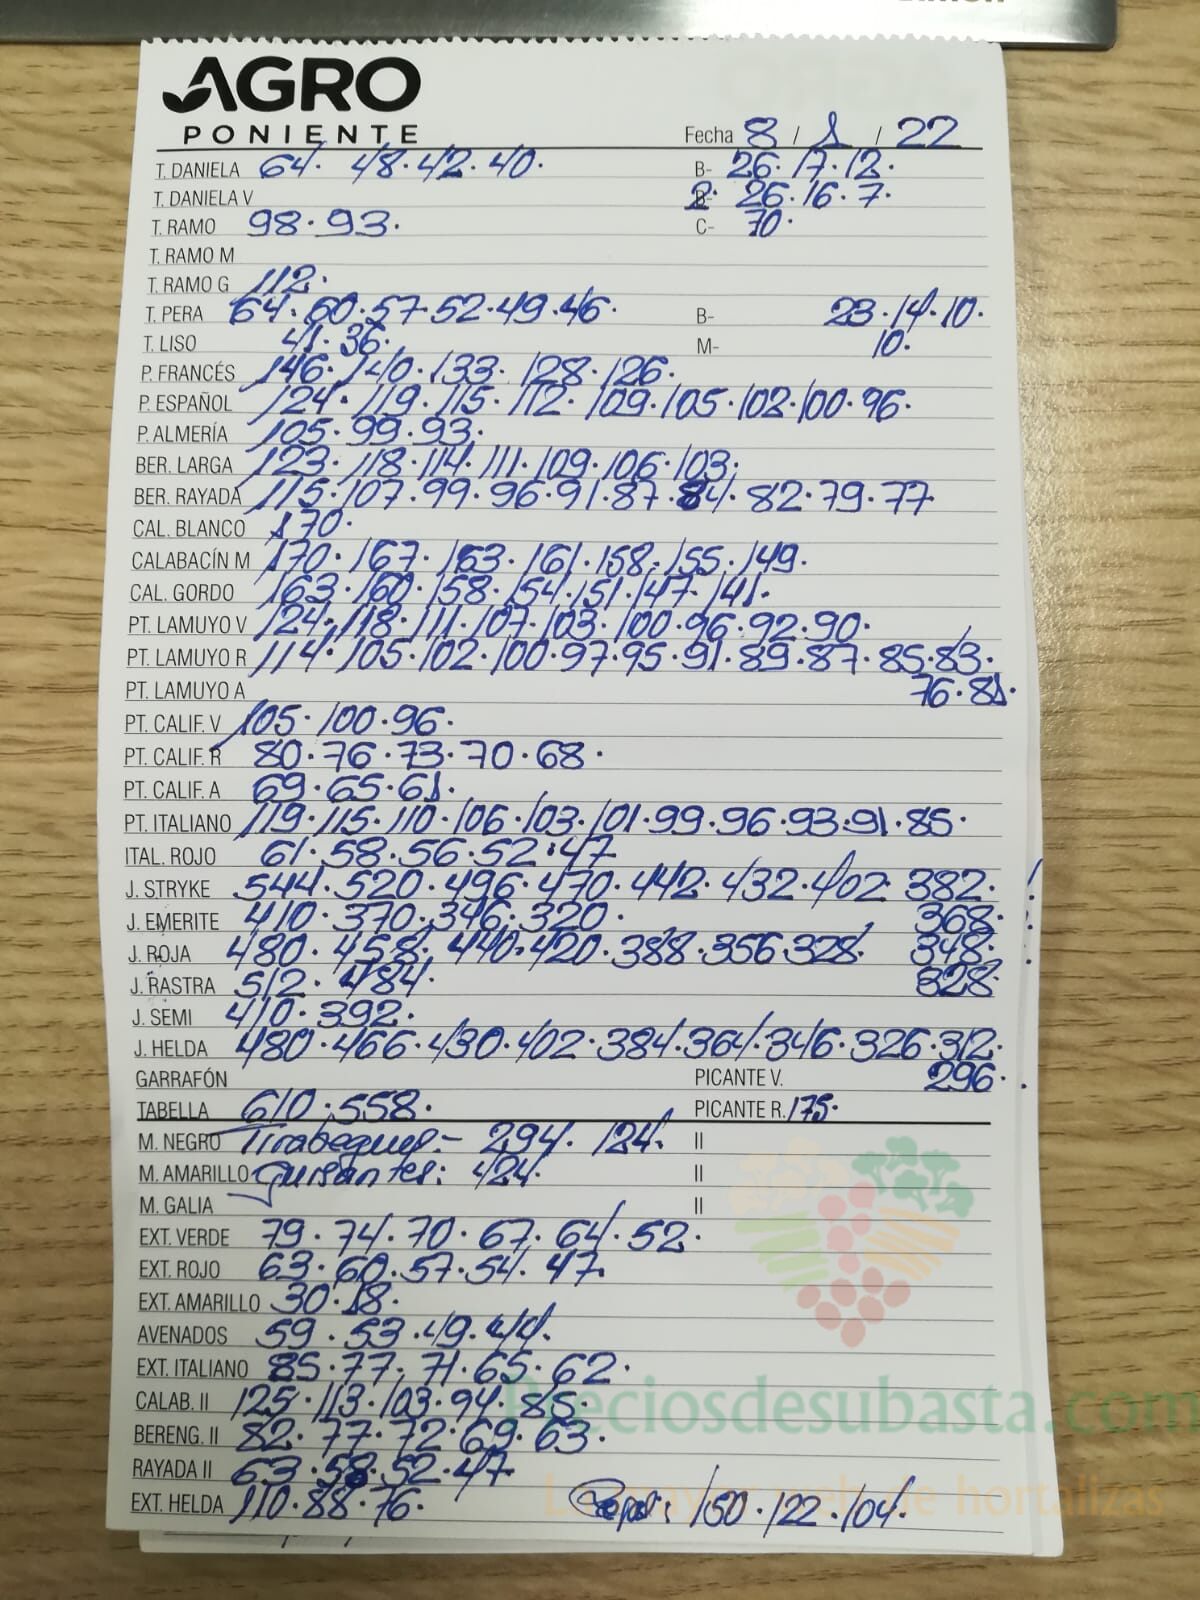 AGRO
PONIENTE
Fecha 8 / 1 / 22
T. DANIELA 64. 48. 42. 40. B- 26. 17. 12.
T. DANIELA V 2. 26. 16. 7.
T. RAMO 98. 93. C- 70.
T. RAMO M
T. RAMO G 112.
T. PERA 64. 60. 57. 52. 49. 46. B- 23. 14. 10.
T. LISO 41. 36. M- 10.
P. FRANCÉS 146. 140. 133. 128. 126.
P. ESPAÑOL 124. 119. 115. 112. 109. 105. 102. 100. 96.
P. ALMERÍA 105. 99. 93.
BER. LARGA 123. 118. 114. 111. 109. 106. 103.
BER. RAYADA 115. 107. 99. 96. 91. 87. 84. 82. 79. 77
CAL. BLANCO 170.
CALABACÍN M 170. 167. 163. 161. 158. 155. 149.
CAL. GORDO 163. 160. 158. 154. 151. 147. 141.
PT. LAMUYO V 124. 118. 111. 107. 103. 100. 96. 92. 90.
PT. LAMUYO R 114. 105. 102. 100. 97. 95. 91. 89. 87. 85. 83.
PT. LAMUYO A 76. 81.
PT. CALIF. V 105. 100. 96.
PT. CALIF. R 80. 76. 73. 70. 68.
PT. CALIF. A 69. 65. 61.
PT. ITALIANO 119. 115. 110. 106. 103. 101. 99. 96. 93. 91. 85.
ITAL. ROJO 61. 58. 56. 52. 47
J. STRYKE 544. 520. 496. 470. 442. 432. 402. 382.
J. EMERITE 410. 370. 346. 320. 368.
J. ROJA 480. 458. 440. 420. 388. 356. 328. 348.
J. RASTRA 512. 484. 328.
J. SEMI 410. 392.
J. HELDA 480. 466. 430. 402. 384. 364. 346. 326. 312.
GARRAFÓN PICANTE V. 296.
TABELLA 610. 558. PICANTE R. 175.
M. NEGRO Tirabeques- 294. 124. II
M. AMARILLO Guisantes: 424. II
M. GALIA II
EXT. VERDE 79. 74. 70. 67. 64. 52.
EXT. ROJO 63. 60. 57. 54. 47.
EXT. AMARILLO 30. 18.
AVENADOS 59. 53. 49. 44.
EXT. ITALIANO 85. 77. 71. 65. 62.
CALAB. II 125. 113. 103. 94. 85.
Preciosdesubasta.com
BERENG. II 82. 77. 72. 69. 63.
RAYADA II 63. 58. 52. 47
EXT. HELDA 110. 88. 76. 150. 122. 104.
de hortalizas